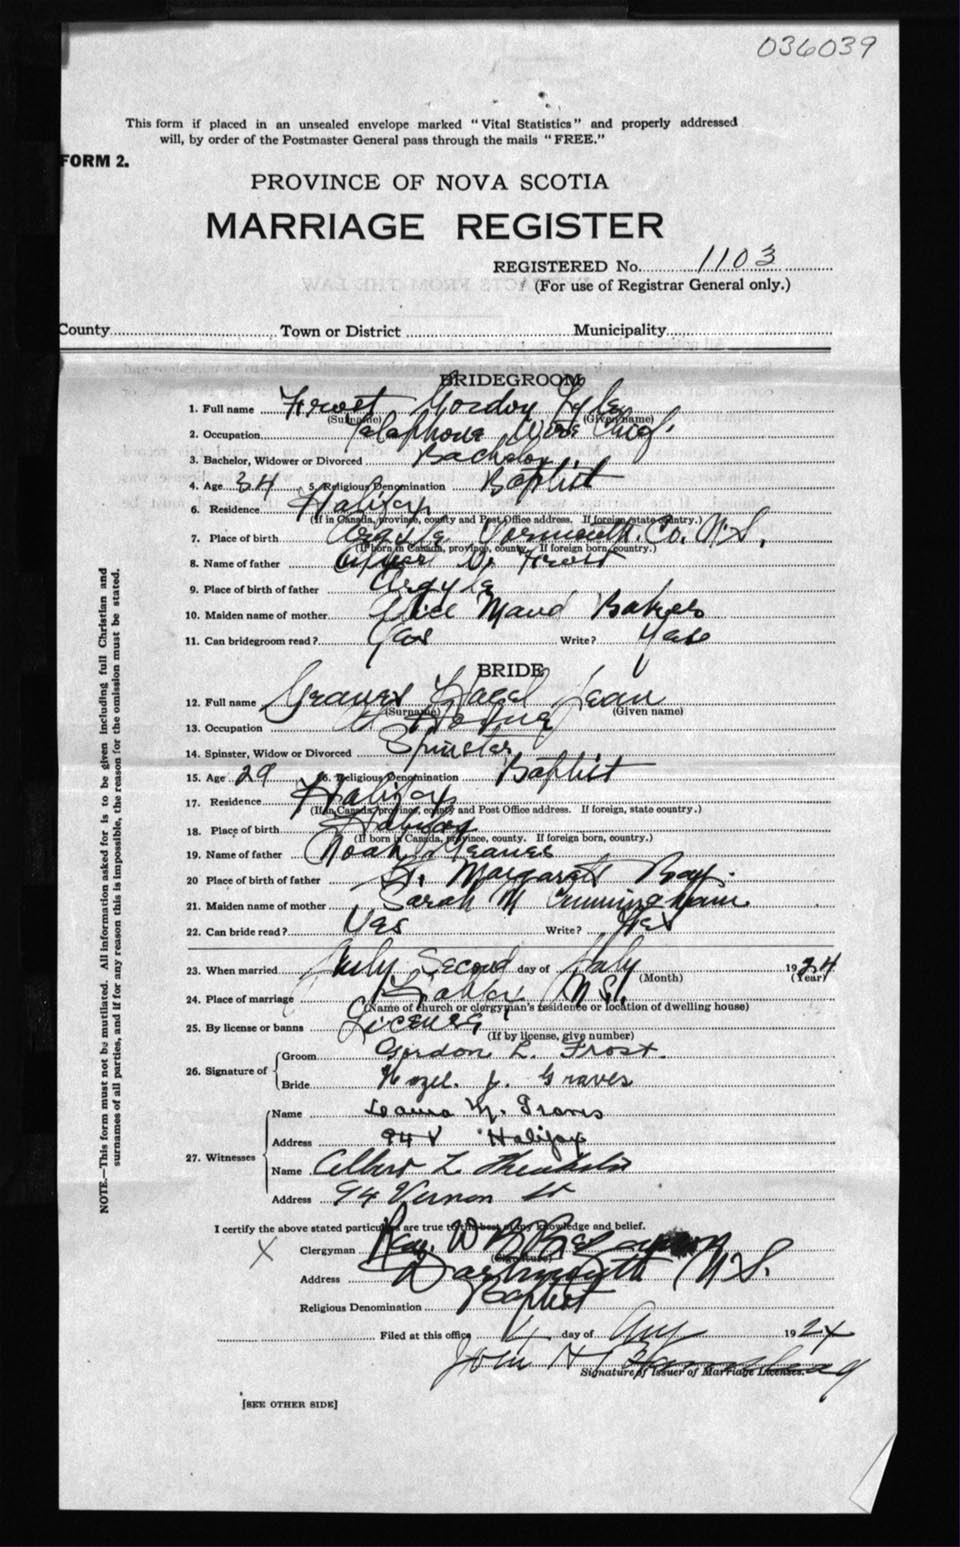 036039
This form if placed in an unsealed envelope marked "Vital Statistics" and properly addressed
will, by order of the Postmaster General pass through the mails "FREE."
FORM 2.
PROVINCE OF NOVA SCOTIA
MARRIAGE REGISTER
REGISTERED No. 1103
(For use of Registrar General only.)
County Town or District Municipality
BRIDEGROOM
1. Full name Frost Gordon Lyle
(Surname) (Given name)
2. Occupation Telephone Wire Chief.
3. Bachelor, Widower or Divorced Bachelor
4. Age 34 5. Religious Denomination Baptist
6. Residence Halifax
(If in Canada, province, county and Post Office address. If foreign, state country.)
7. Place of birth Argyle Yarmouth. Co. N.S.
(If born in Canada, province, county. If foreign born, country.)
8. Name of father Frost
9. Place of birth of father Argyle
10. Maiden name of mother Alice Maud
11. Can bridegroom read? Yes Write? Yes
BRIDE
12. Full name Graves Hazel Jean
(Surname) (Given name)
13. Occupation At Home
14. Spinster, Widow or Divorced Spinster
15. Age 29 16. Religious Denomination Baptist
17. Residence Halifax
(If in Canada, province, county and Post Office address. If foreign, state country.)
18. Place of birth Halifax
(If born in Canada, province, county. If foreign born, country.)
19. Name of father Noah Graves
20 Place of birth of father St. Margaret Bay.
21. Maiden name of mother Sarah M Cunningham
22. Can bride read? Yes Write? Yes
23. When married July Second day of July 1924
(Month) (Year)
24. Place of marriage N.S.
(Name of church or clergyman's residence or location of dwelling house)
25. By license or banns License
(If by license, give number)
26. Signature of Groom Gordon L. Frost.
Bride Hazel. J. Graves
27. Witnesses Name Laura M.
Address 94 V Halifax
Name Albert L
Address 94 Vernon St
I certify the above stated particulars are true to the best of my knowledge and belief.
X Clergyman Rev. W
(Signature)
Address Dartmouth N.S.
Religious Denomination Baptist
Filed at this office day of Aug 1924
John H
Signature of Issuer of Marriage Licenses.
[SEE OTHER SIDE]
NOTE.—This form must not be mutilated. All information asked for is to be given including full Christian and
surnames of all parties, and if for any reason this is impossible, the reason for the omission must be stated.